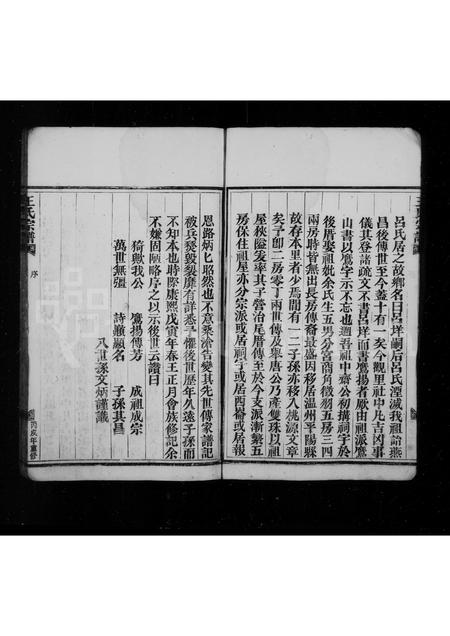 呂氏居之故鄉名曰呂垟嗣后呂氏湮滅我祖詒燕
昌後傳世至今蓋十有一矣今觀里社中凡吉凶事
儀其登諸疏文不書呂垟而書鷹揚者厥由祖派鷹
山書以鷹字示不忘也迴吾祖中齋公初搆祠宇於
後厝娶祖妣余氏生五男分宮商角徵羽五房三四
兩房時皆無出長房傳裔最盛因移居溫州平陽縣
故存本里者少焉間有一二子孫亦移入桃源文章
矣予卽二房零丁兩世傳及舉唐公乃產雙珠以祖
屋狹隘爰率其子營治尾厝傳至於今支派漸繁五
房保住祖屋亦分宗派或居祠字或居西齋或居報
恩路炳七昭然也不意桑滄告變其先世傳家譜記
被兵燹毀裂靡有詳悉予懼後世歷年久遠子孫而
不知本也時際康熙戊寅年春王正月會族修記余
不嫌固陋略序之以示後世云讚曰
猗歟我公 鷹揚傳芳 成祖成宗
萬世無疆 詩嚴顯名 子孫其昌
八世孫文炳謹識
王氏宗譜
序
丙戌年重修